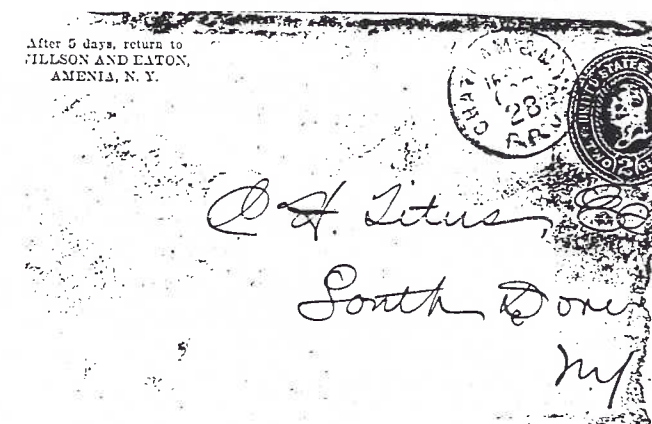 After 5 days, return to
ILLSON AND EATON,
AMENIA, N. Y.
28
UNITED STATES
2
H. Titus,
South Dover
NY